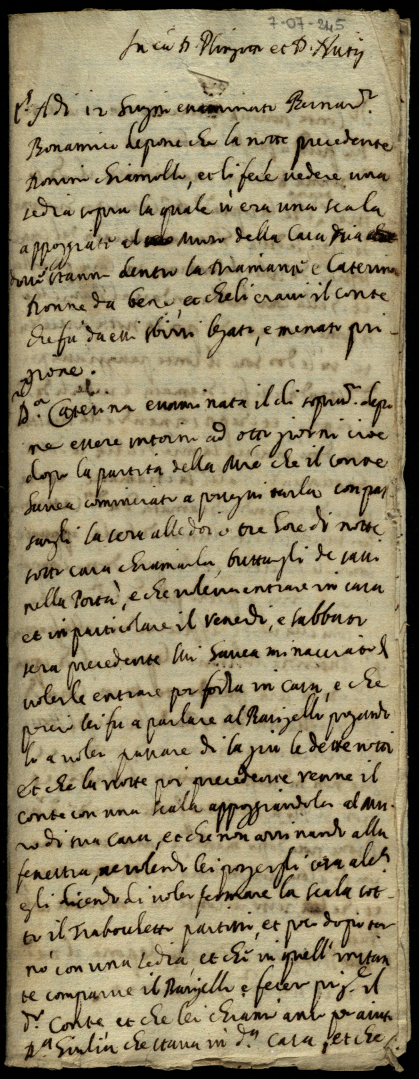 7-07-245
In cã D. et D.
Adi 12 Giugno examinato Bernard.º
Bonamico depone che la notte precedente
chiamollo, et li fece vedere una
sedia sopra la quale vi era una scala
appoggiata al muro della Casa
dove stanno dentro la e Caterina
Donne da bene, et che li era il conte
che fù da essi sbirri legato, e menato pri-
gione.
D.ª Caterina examinata il dì soprad.º depo
ne essere intorno ad otto giorni cioe
dopo la partita della che il conte
haveva cominciato a perseguitarla con pas
sargli la sera alle doi o tre hore di notte
sotto casa chiamarla, buttargli de sassi
nella Porta, e che voleva entrare in casa
et in particolare il venerdi, e sabbato
sera precedente lui haveva minacciato di
volerle entrare per forza in casa, e che
perciò lei fu a parlare al Barigello pregando
lo a voler passare di la giu le dette notti
et che la notte poi precedente venne il
conte con una scala appoggiandola al mu-
ro di sua casa, et che non arrivando alla
fenestra, volendo lei porgergli
egli dicendo di voler fermare la scala sot-
to il Trabocchetto partissi, et poco dopo tor
nò con una sedia et che in quell'instan
te comparve il Barigello e fecer prig.e il
d.º Conte et che lei chiamò per aiuto
D.ª Giulia che stava in d.ª casa, et che